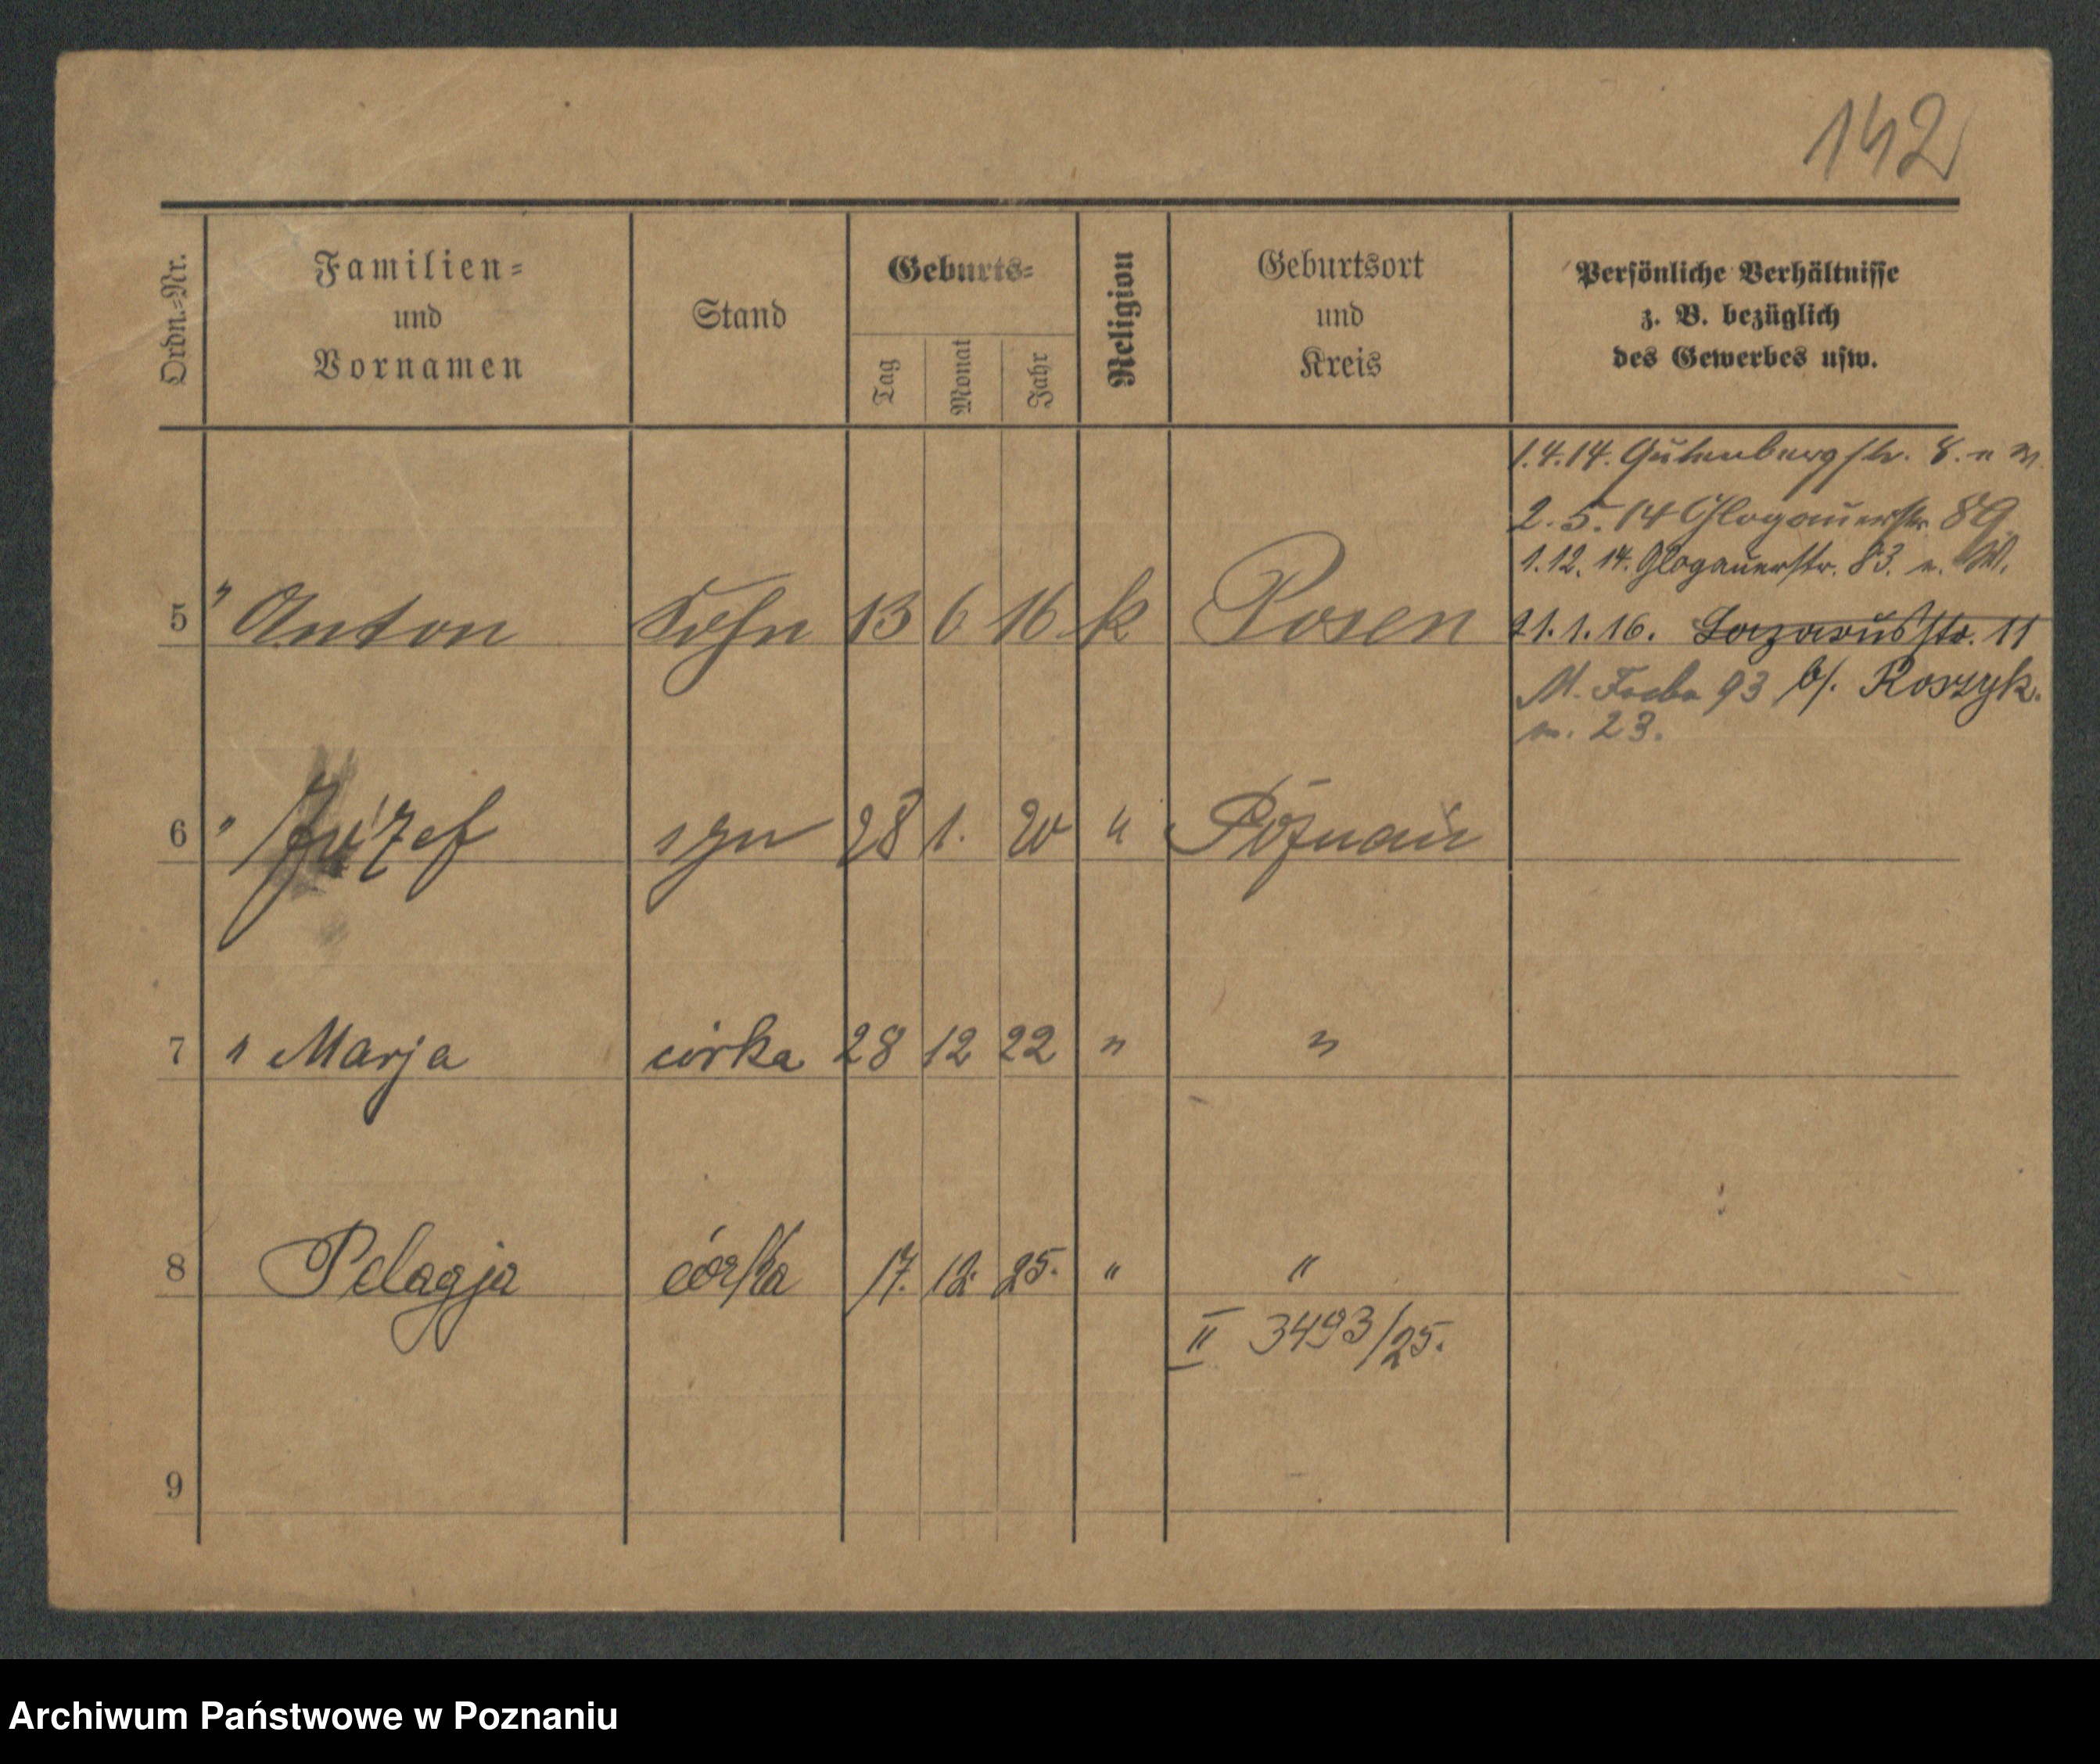 142
Ordn.-Nr.
Familien-
und
Vornamen
Stand
Geburts-
Tag
Monat
Jahr
Religion
Geburtsort
und
Kreis
Persönliche Verhältnisse
z. B. bezüglich
des Gewerbes usw.
1.4.14. Gutenbergstr. 8.
2.5.14 Glogauerstr. 89
1.12.14. Glogauerstr. 83. n. W.
5 " Anton Sohn 13 6 16 k Posen
21.1.16. Lazarusstr. 11
M. Focha 93 b/. Roszyk.
m. 23.
6 " Józef syn 28 1. 20 " Poznań
7 " Marja córka 28 12 22 " "
8 Pelagja córka 17. 12. 25. " "
II 3493/25.
9
Archiwum Państwowe w Poznaniu